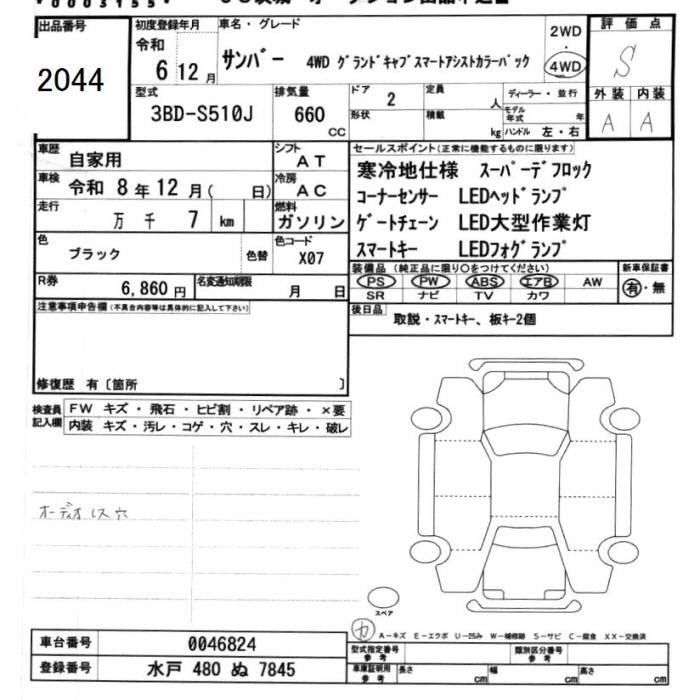 出品番号 2044
初度登録年月 令和 6 12月
車名・グレード サンバー 4WD グランドキャブスマートアシストカラーパック
2WD・4WD
評価点 S
外装 A 内装 A
型式 3BD-S510J
排気量 660 CC
ドア 2 形状
定員 人 積載 kg
ディーラー・並行
モデル年式 年
ハンドル 左・右
車歴 自家用
シフト AT
車検 令和 8年12月( 日)
冷房 AC
走行 万 千 7 km
燃料 ガソリン
色 ブラック 色替
色コード X07
R券 6,860円
名変通知期限 月 日
セールスポイント(正常に機能するものに限ります)
寒冷地仕様 スーパーデフロック
コーナーセンサー LEDヘッドランプ
ゲートチェーン LED大型作業灯
スマートキー LEDフォグランプ
装備品(純正品に限り○をつけてください)
PS PW ABS エアB AW
SR ナビ TV カワ
新車保証書 有・無
後日品 取説・スマートキー、板キー2個
注意事項申告欄(不具合内容等は具体的に記入して下さい)
修復歴 有〔箇所 〕
検査員記入欄
FW キズ・飛石・ヒビ割・リペア跡・×要
内装 キズ・汚レ・コゲ・穴・スレ・キレ・破レ
オーディオレス穴
スペア
カ
A−キズ E−エクボ U−凹み W−補修跡 S−サビ C−腐食 XX−交換済
車台番号 0046824
登録番号 水戸 480 ぬ 7845
型式指定番号 参考
類別区分番号 参考
車庫証明用 参考 長さ cm 幅 cm 高さ cm